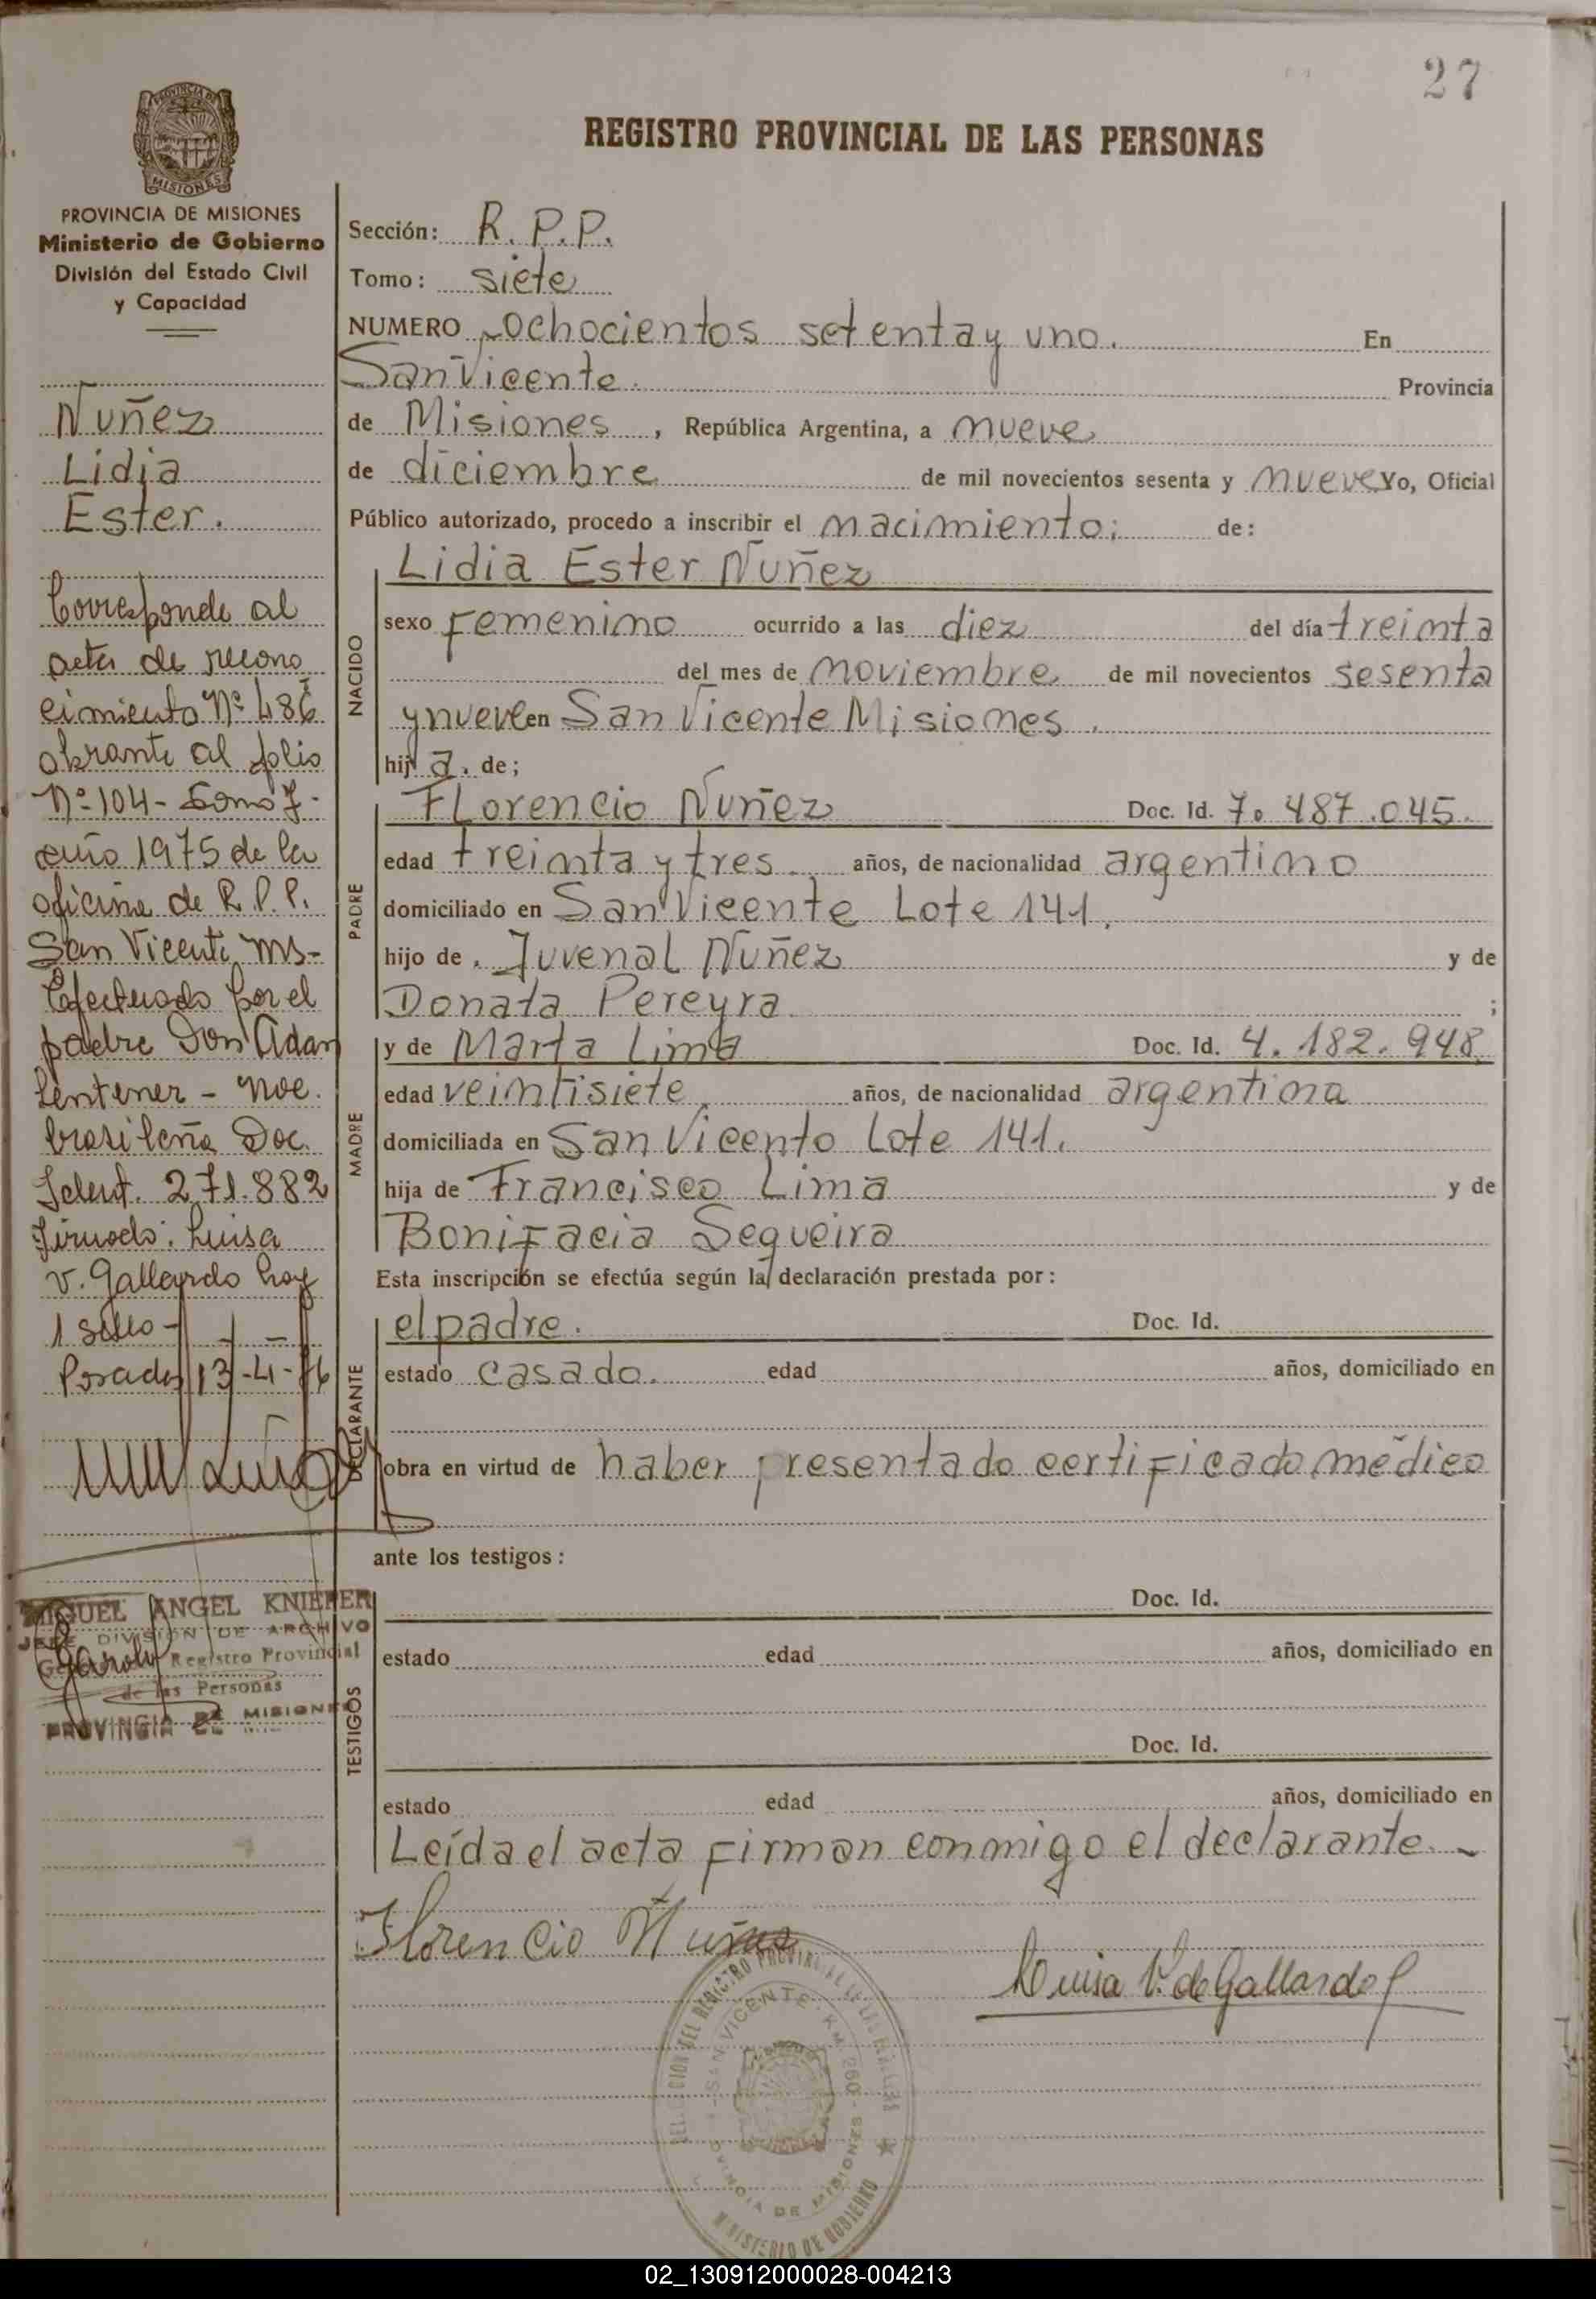 27
REGISTRO PROVINCIAL DE LAS PERSONAS
PROVINCIA DE MISIONES
Ministerio de Gobierno
División del Estado Civil
y Capacidad
Nuñez
Lidia
Ester.
Corresponde al
acta de recono
cimiento Nº 486
obrante al folio
Nº 104 - Tomo 7 -
año 1975 de la
oficina de R.P.P.
San Vicente Ms-
Efectuado por el
padre Don Adan
Lentener - Noc.
brasileña Doc.
Ident. 271.882
Firmado: Luisa
V. Gallardo hay
1 sello -
Posadas 13-4-76
MIGUEL ANGEL KNIEPER
JEFE DIVISION DE ARCHIVO
Registro Provincial
de las Personas
PROVINCIA DE MISIONES
Sección: R. P. P.
Tomo: siete
NUMERO ochocientos setenta y uno. En
San Vicente. Provincia
de Misiones, República Argentina, a nueve
de diciembre de mil novecientos sesenta y nueve Yo, Oficial
Público autorizado, procedo a inscribir el nacimiento; de:
NACIDO
Lidia Ester Nuñez
sexo femenino ocurrido a las diez del día treinta
del mes de noviembre de mil novecientos sesenta
y nueve en San Vicente Misiones.
hija. de;
PADRE
Florencio Nuñez Doc. Id. 7. 487.045.
edad treinta y tres años, de nacionalidad argentino
domiciliado en San Vicente Lote 141.
hijo de. Juvenal Nuñez y de
Donata Pereyra. ;
MADRE
y de Marta Lima Doc. Id. 4. 182. 948.
edad veintisiete años, de nacionalidad argentina
domiciliada en San Vicento Lote 141.
hija de Francisco Lima y de
Bonifacia Segueira
Esta inscripción se efectúa según la declaración prestada por:
DECLARANTE
el padre. Doc. Id.
estado casado. edad años, domiciliado en
obra en virtud de haber presentado certificado médico
ante los testigos:
TESTIGOS
Doc. Id.
estado edad años, domiciliado en
Doc. Id.
estado edad años, domiciliado en
Leída el acta firman conmigo el declarante.
Florencio Nuñes
Luisa V. de Gallardo
DELEGACION DEL REGISTRO PROVINCIAL DE LAS PERSONAS
SAN VICENTE - KM. 260 - MISIONES
PROVINCIA DE MISIONES
MINISTERIO DE GOBIERNO
02_130912000028-004213